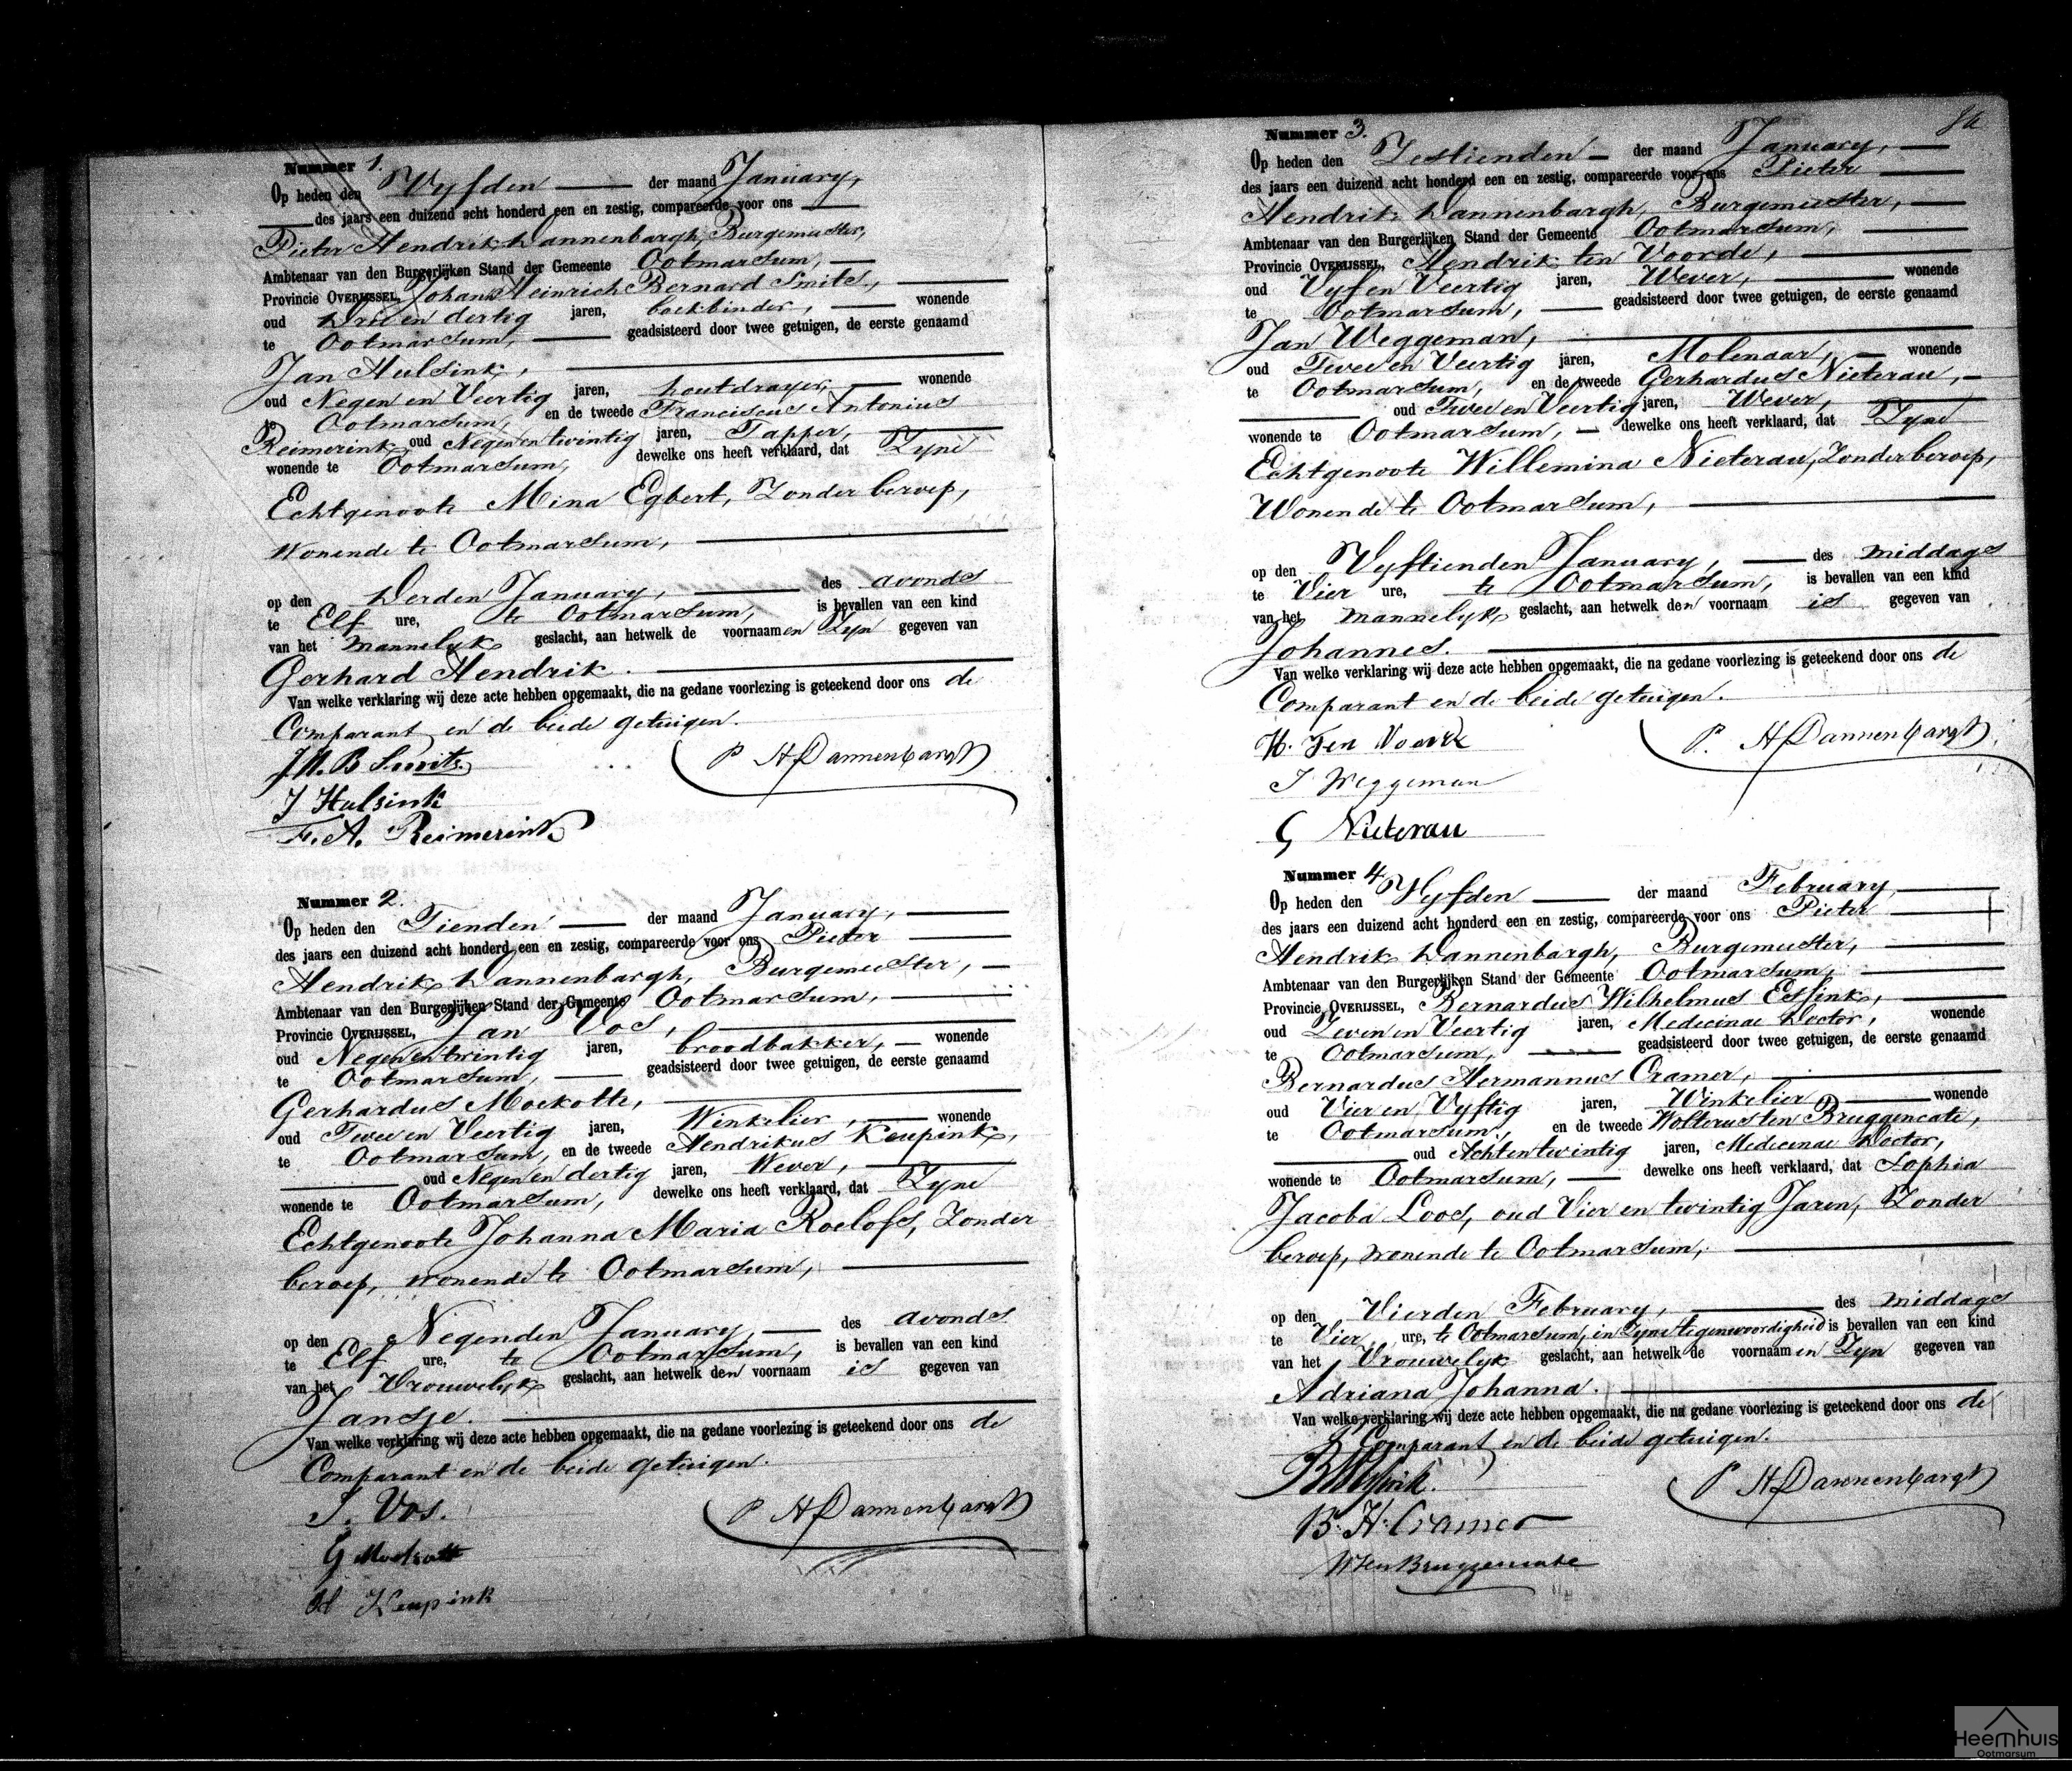 Nummer 1.
Op heden den Vyfden der maand January,
des jaars een duizend acht honderd een en zestig, compareerde voor ons
Pieter Hendrik Dannenbargh, Burgemeester,
Ambtenaar van den Burgerlijken Stand der Gemeente Ootmarsum,
Provincie OVERIJSSEL, Johann Heinrich Bernard Smits,
oud Drie en dertig jaren, boekbinder, wonende
te Ootmarsum, geadsisteerd door twee getuigen, de eerste genaamd
Jan Hulsink,
oud Negen en Veertig jaren, houtdrayer, wonende
te Ootmarsum, en de tweede Franciscus Antonius
Reimerink, oud Negen en twintig jaren, Tapper,
wonende te Ootmarsum, dewelke ons heeft verklaard, dat Zyne
Echtgenoote Mina Egbert, Zonder beroep,
Wonende te Ootmarsum,
op den Derden January, des avonds
te Elf ure, te Ootmarsum, is bevallen van een kind
van het mannelyk geslacht, aan hetwelk de voornaamen Zyn gegeven van
Gerhard Hendrik.
Van welke verklaring wij deze acte hebben opgemaakt, die na gedane voorlezing is geteekend door ons de
Comparant en de beide getuigen.
J.H.B Smits. P H Dannenbargh
J Hulsink
F. A. Reimerink
Nummer 2.
Op heden den Tienden der maand January,
des jaars een duizend acht honderd een en zestig, compareerde voor ons Pieter
Hendrik Dannenbargh, Burgemeester,
Ambtenaar van den Burgerlijken Stand der Gemeente Ootmarsum,
Provincie OVERIJSSEL, Jan Vos,
oud Negen en twintig jaren, broodbakker, wonende
te Ootmarsum, geadsisteerd door twee getuigen, de eerste genaamd
Gerhardus Moekotte,
oud Twee en Veertig jaren, Winkelier, wonende
te Ootmarsum, en de tweede Hendrikus Keupink,
oud Negen en dertig jaren, Wever,
wonende te Ootmarsum, dewelke ons heeft verklaard, dat Zyne
Echtgenoote Johanna Maria Roelofs, Zonder
beroep, wonende te Ootmarsum,
op den Negenden January, des avonds
te Elf ure, te Ootmarsum, is bevallen van een kind
van het Vrouwelyk geslacht, aan hetwelk den voornaam is gegeven van
Jansje.
Van welke verklaring wij deze acte hebben opgemaakt, die na gedane voorlezing is geteekend door ons de
Comparant en de beide getuigen.
J. Vos. P H Dannenbargh
G
H Keupink
8a
Nummer 3.
Op heden den Zestienden der maand January,
des jaars een duizend acht honderd een en zestig, compareerde voor ons Pieter
Hendrik Dannenbargh, Burgemeester,
Ambtenaar van den Burgerlijken Stand der Gemeente Ootmarsum,
Provincie OVERIJSSEL, Hendrik ten Voorde,
oud Vyf en Veertig jaren, Wever, wonende
te Ootmarsum, geadsisteerd door twee getuigen, de eerste genaamd
Jan Weggeman,
oud Twee en Veertig jaren, Molenaar, wonende
te Ootmarsum, en de tweede Gerhardus Nieterau,
oud Twee en Veertig jaren, Wever,
wonende te Ootmarsum, dewelke ons heeft verklaard, dat Zyne
Echtgenoote Willemina Nieterau, Zonder beroep,
Wonende te Ootmarsum,
op den Vyftienden January, des middags
te Vier ure, te Ootmarsum, is bevallen van een kind
van het mannelyk geslacht, aan hetwelk den voornaam is gegeven van
Johannes.
Van welke verklaring wij deze acte hebben opgemaakt, die na gedane voorlezing is geteekend door ons de
Comparant en de beide getuigen.
H. Ten Voorde P. H Dannenbargh
J Weggeman
G Nieterau
Nummer 4
Op heden den Vyfden der maand February,
des jaars een duizend acht honderd een en zestig, compareerde voor ons Pieter
Hendrik Dannenbargh, Burgemeester,
Ambtenaar van den Burgerlijken Stand der Gemeente Ootmarsum,
Provincie OVERIJSSEL, Bernardus Wilhelmus Essink,
oud Zeven en Veertig jaren, Medecinae Doctor, wonende
te Ootmarsum, geadsisteerd door twee getuigen, de eerste genaamd
Bernardus Hermannus Cramer,
oud Vier en Vyftig jaren, Winkelier wonende
te Ootmarsum, en de tweede Wolterus ten Bruggencate,
oud Achtentwintig jaren, Medecinae Doctor,
wonende te Ootmarsum, dewelke ons heeft verklaard, dat Sophia
Jacoba Loos, oud Vier en twintig Jaren, Zonder
beroep, wonende te Ootmarsum,
op den Vierden February, des middags
te Vier ure, te Ootmarsum, in Zyne tegenwoordigheid is bevallen van een kind
van het Vrouwelyk geslacht, aan hetwelk de voornaamen Zyn gegeven van
Adriana Johanna.
Van welke verklaring wij deze acte hebben opgemaakt, die na gedane voorlezing is geteekend door ons de
Comparant en de beide getuigen.
P H Dannenbargh
B. H. Cramer
W ten Bruggencate
Heemhuis
Ootmarsum